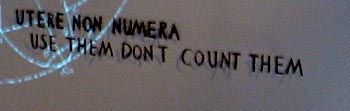 UTERE NON NUMERA
USE THEM DON'T COUNT THEM